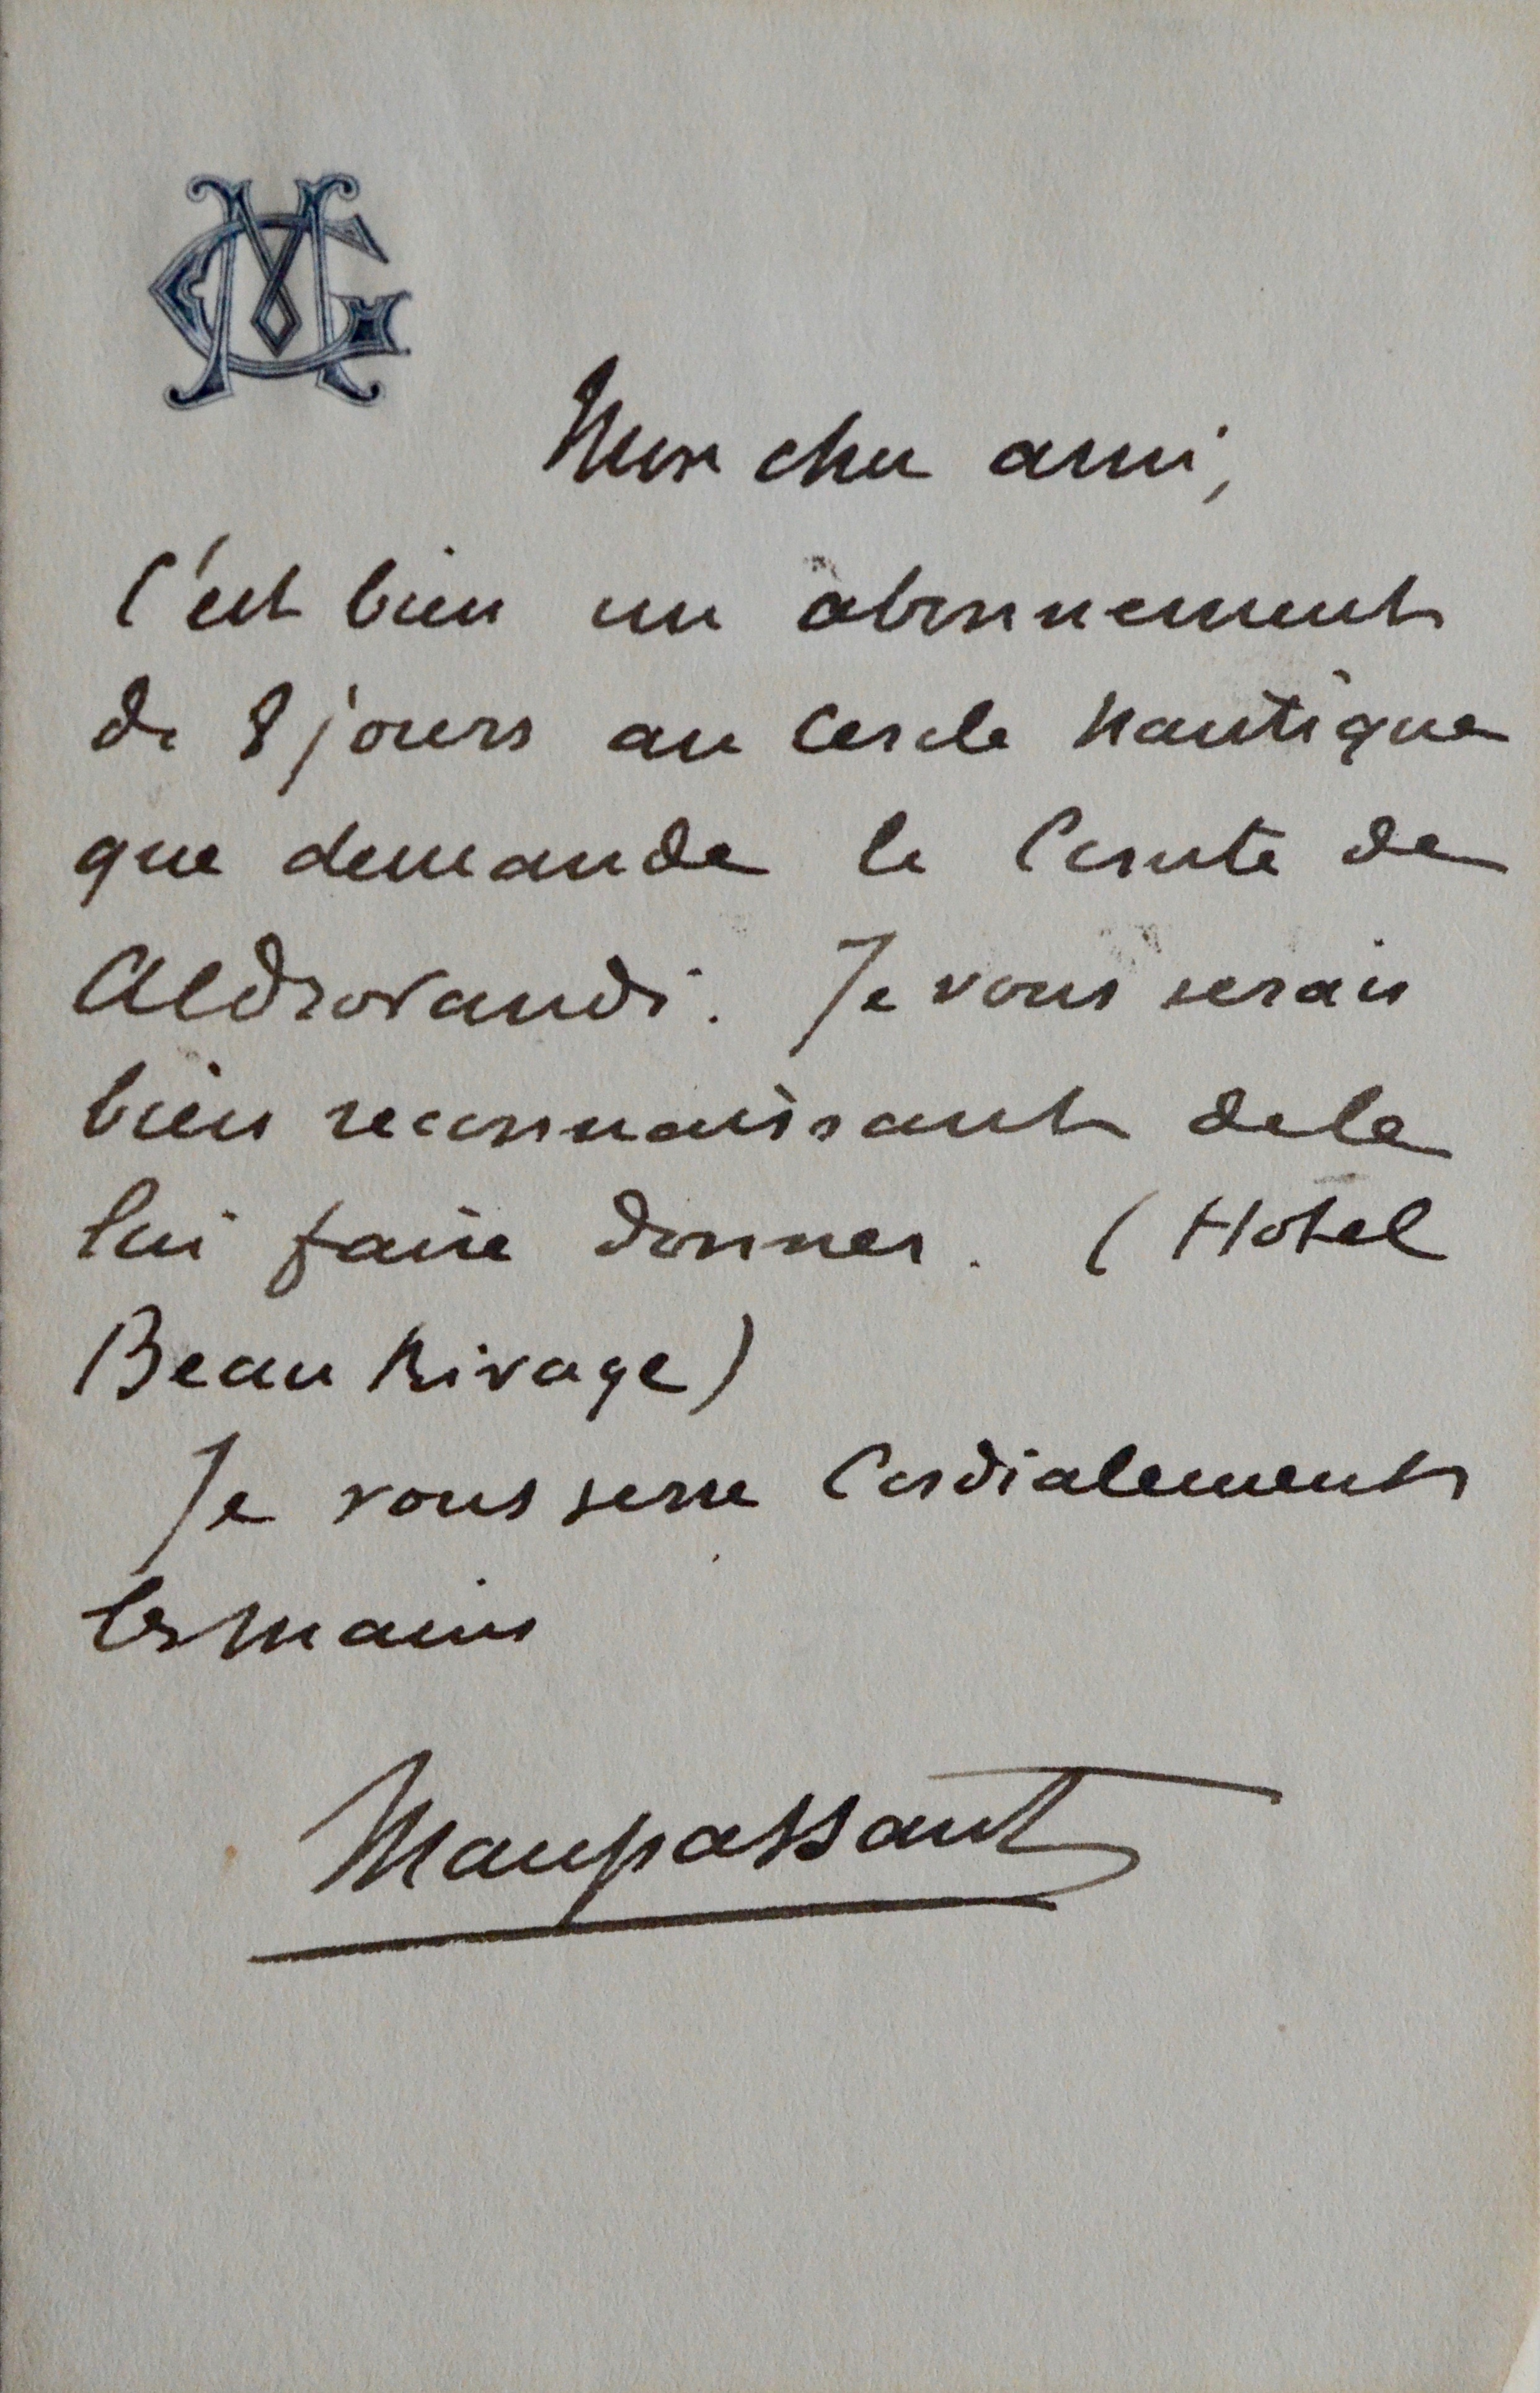 MG
Mon cher ami,
C'est bien un abonnement
de 8 jours au Cercle Nautique
que demande le Comte de
Aldrovandi. Je vous serais
bien reconnaissant de le
lui faire donner. (Hotel
Beau Rivage)
Je vous serre Cordialement
les mains
Maupassant